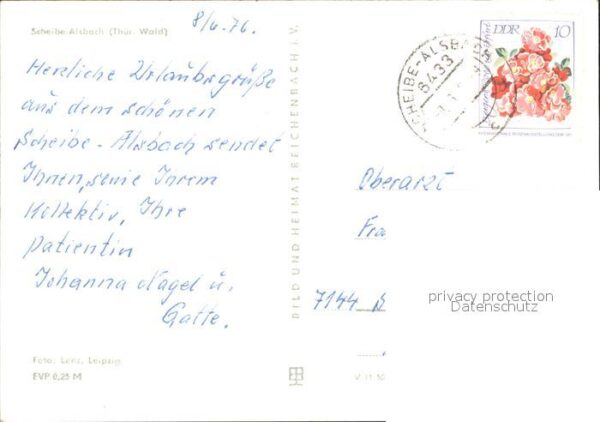 Scheibe-Alsbach (Thür. Wald)
8/6.76.
Herzliche Urlaubsgrüße
aus dem schönen
Scheibe-Alsbach sendet
Ihnen, sowie Ihrem
Kollektiv, Ihre
Patientin
Johanna Nagel u.
Gatte.
Foto: Lenz, Leipzig
EVP 0,25 M
BILD UND HEIMAT REICHENBACH i. V.
V 11 50
DDR 10
SCHEIBE-ALSB
6433
Oberarzt
Fra
7144
privacy protection
Datenschutz